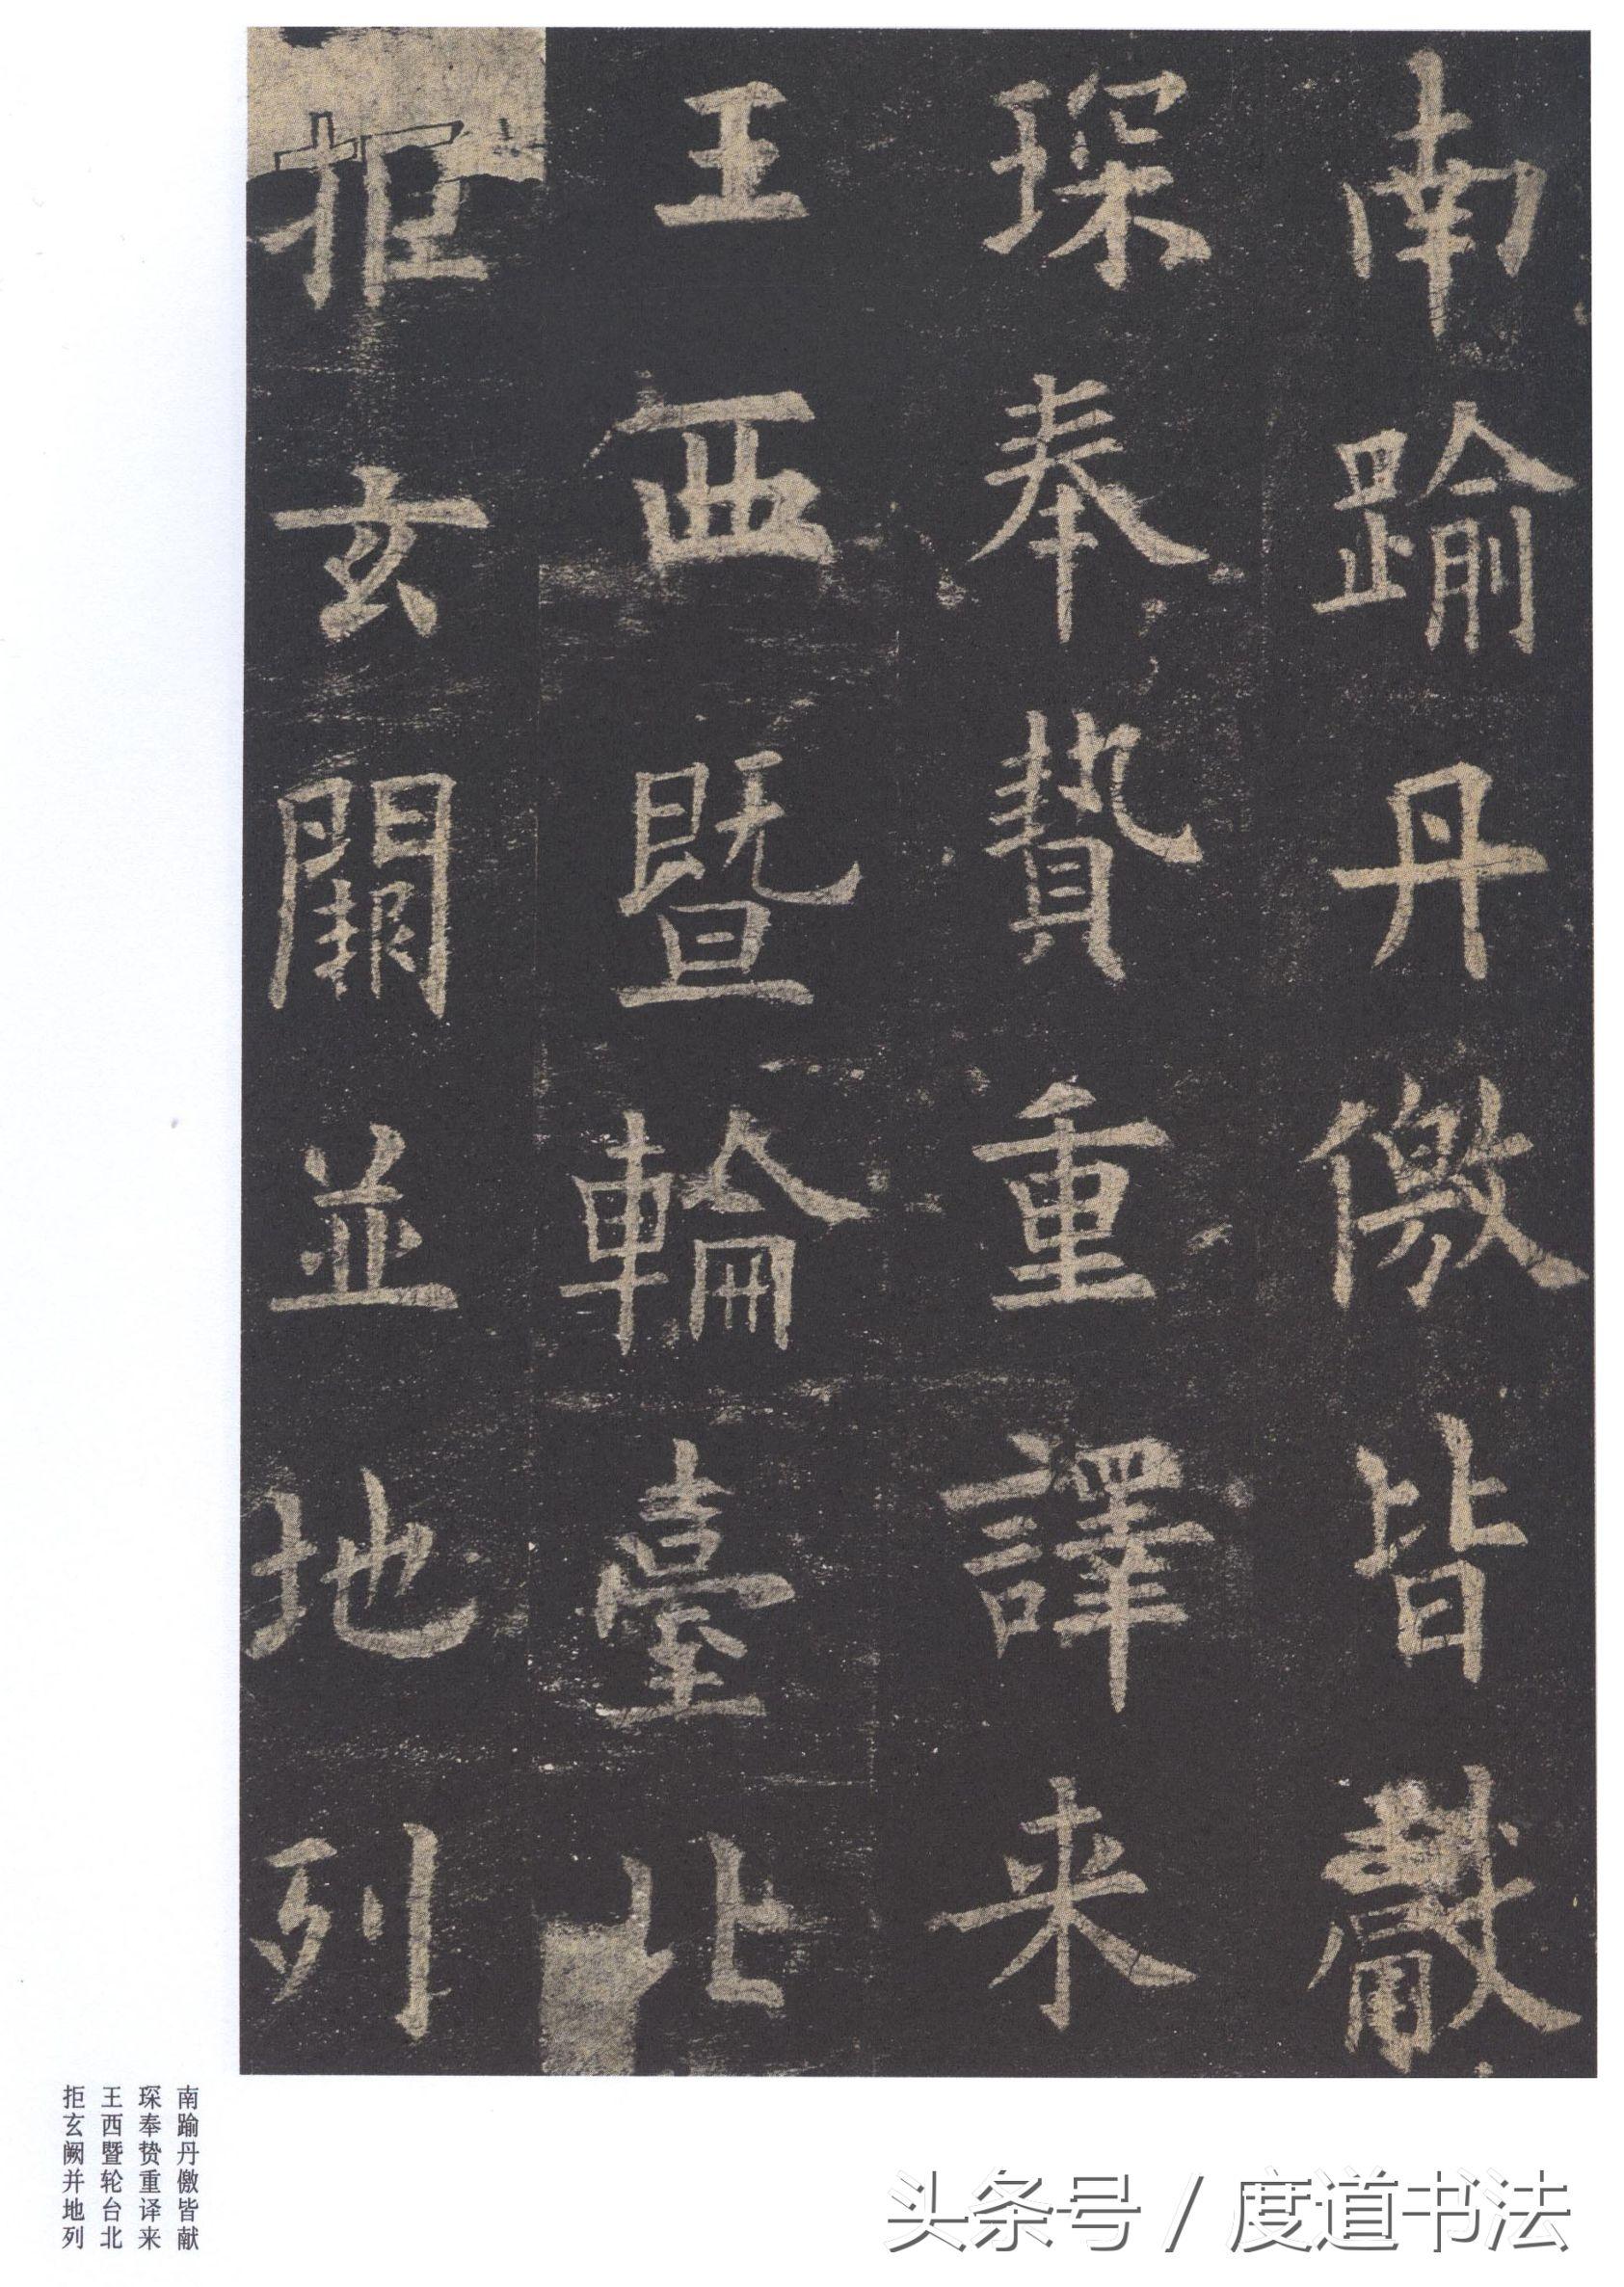 南踰丹儌皆獻
琛奉贄重譯来
王西暨輪臺北
拒玄闕並地列
南踰丹儌皆献
琛奉贽重译来
王西暨轮台北
拒玄阙并地列
头条号 / 度道书法